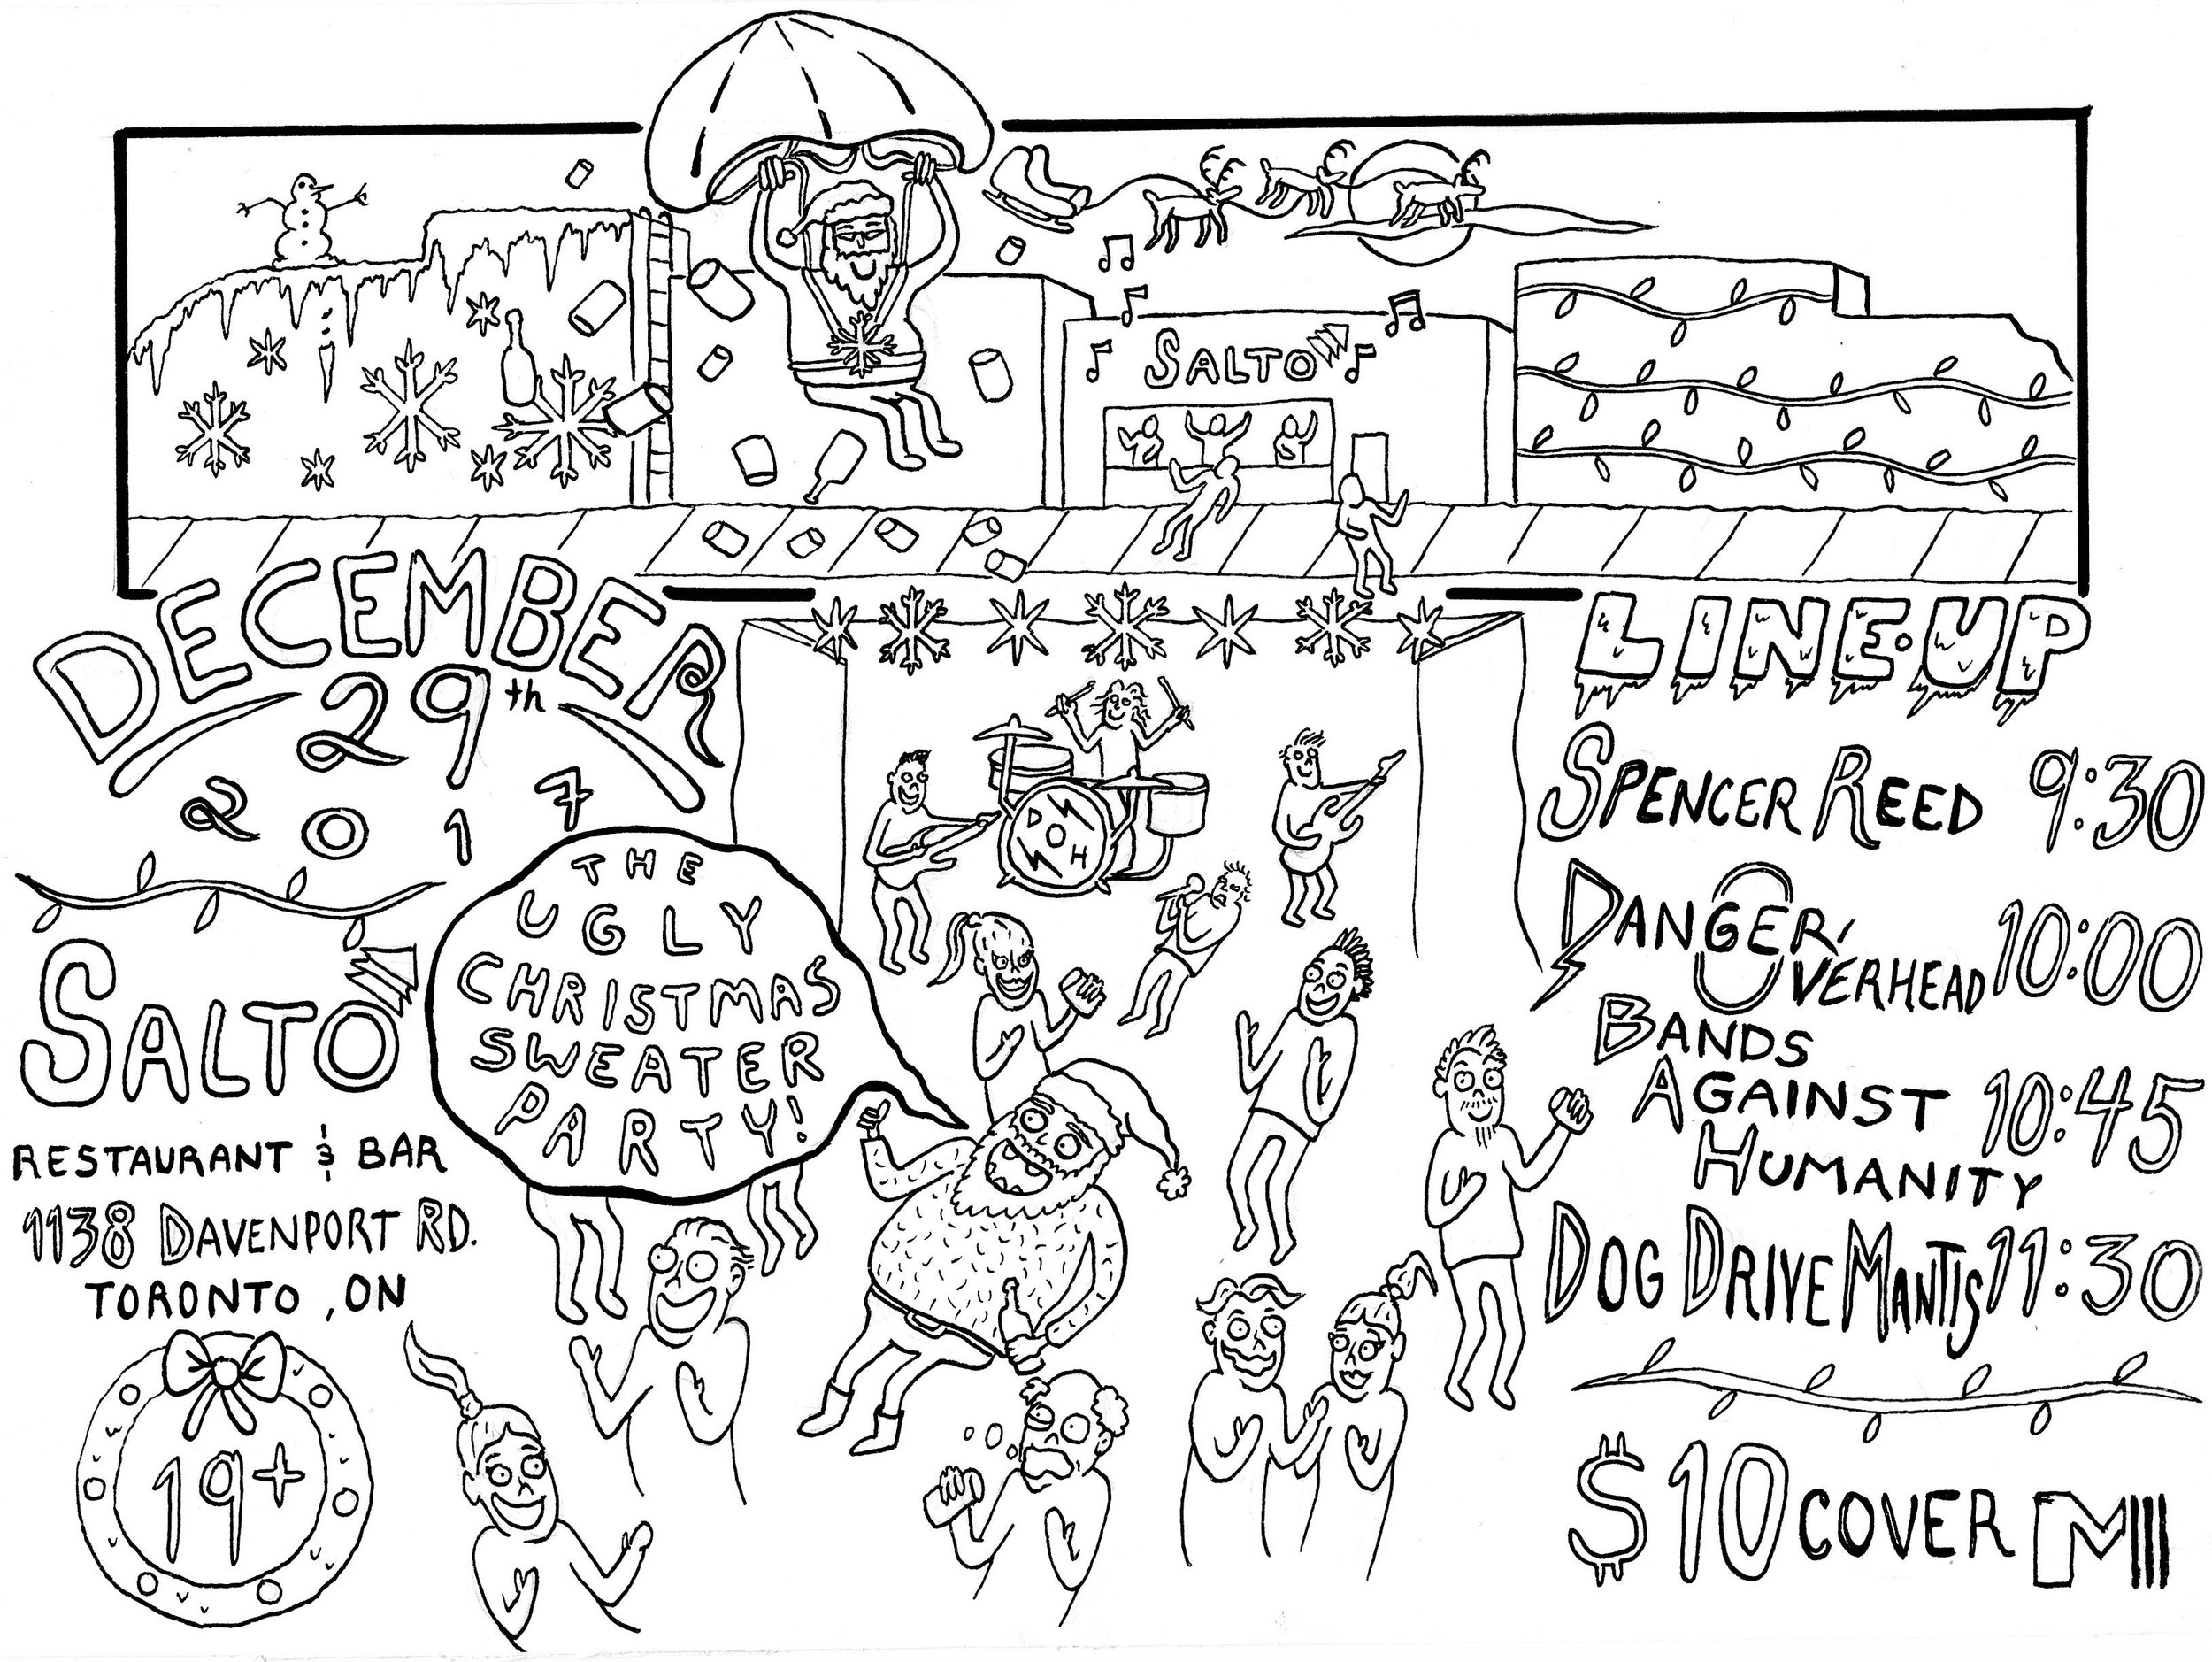 SALTO
DECEMBER
29th
2017
SALTO
RESTAURANT & BAR
1138 DAVENPORT RD.
TORONTO, ON
19+
THE
UGLY
CHRISTMAS
SWEATER
PARTY!
DOH
LINE-UP
SPENCER REED 9:30
DANGER OVERHEAD 10:00
BANDS
AGAINST 10:45
HUMANITY
DOG DRIVE MANTIS 11:30
$10 COVER